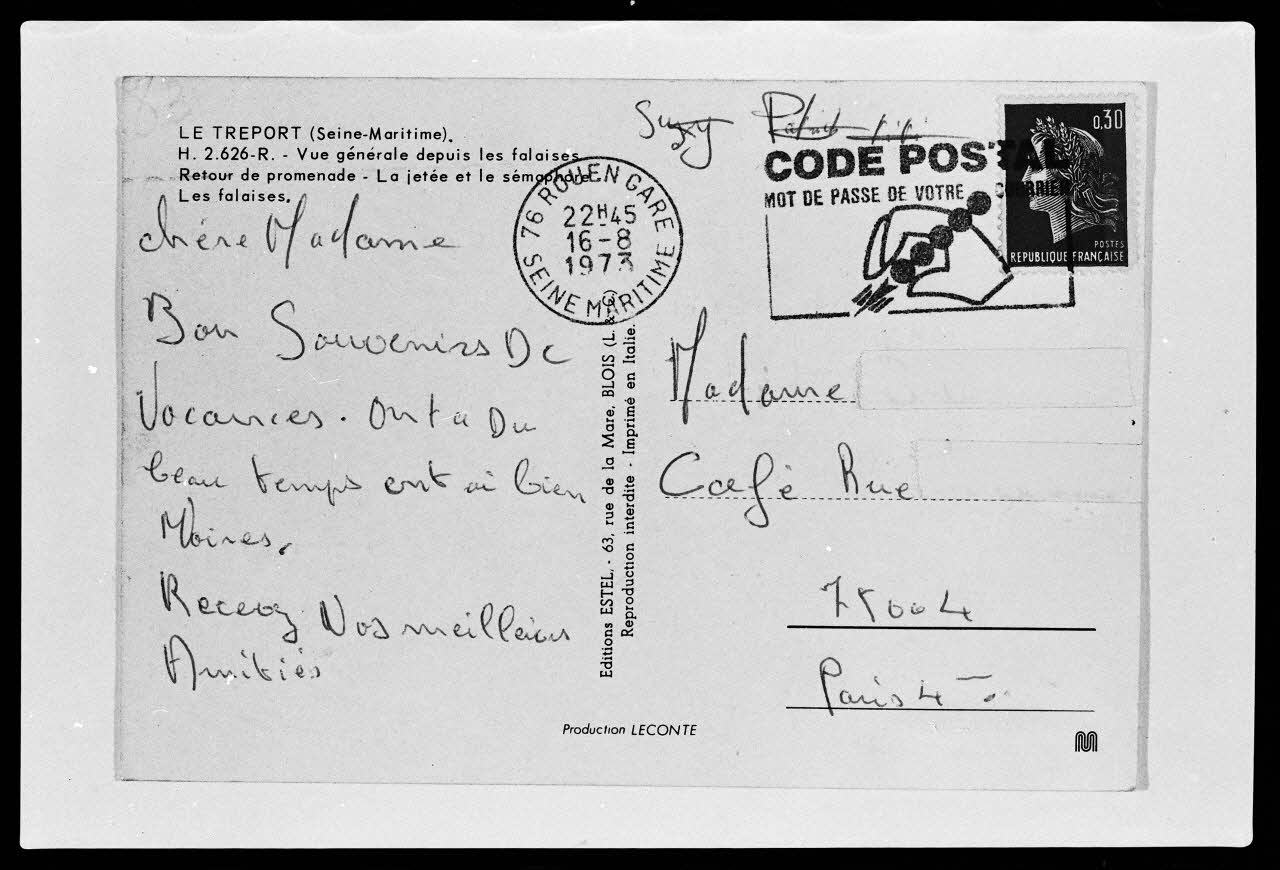 LE TREPORT (Seine-Maritime).
H. 2.626-R. - Vue générale depuis les falaises
Retour de promenade - La jetée et le sémaphore.
Les falaises.
chère Madame
Bon Souvenirs De
Vacances. Ont a Du
beau temps ont ai bien
Moires.
Recevoz Nos meilleurs
Amitiés
76 ROUEN GARE
22H45
16-8
1973
SEINE MARITIME
Editions ESTEL, - 63, rue de la Mare, BLOIS (L. & C)
Reproduction interdite - Imprimé en Italie.
Production LECONTE
Suzy
CODE POSTAL
MOT DE PASSE DE VOTRE COURRIER
0,30
POSTES
REPUBLIQUE FRANÇAISE
Madame
Café Rue
75004
Paris 4